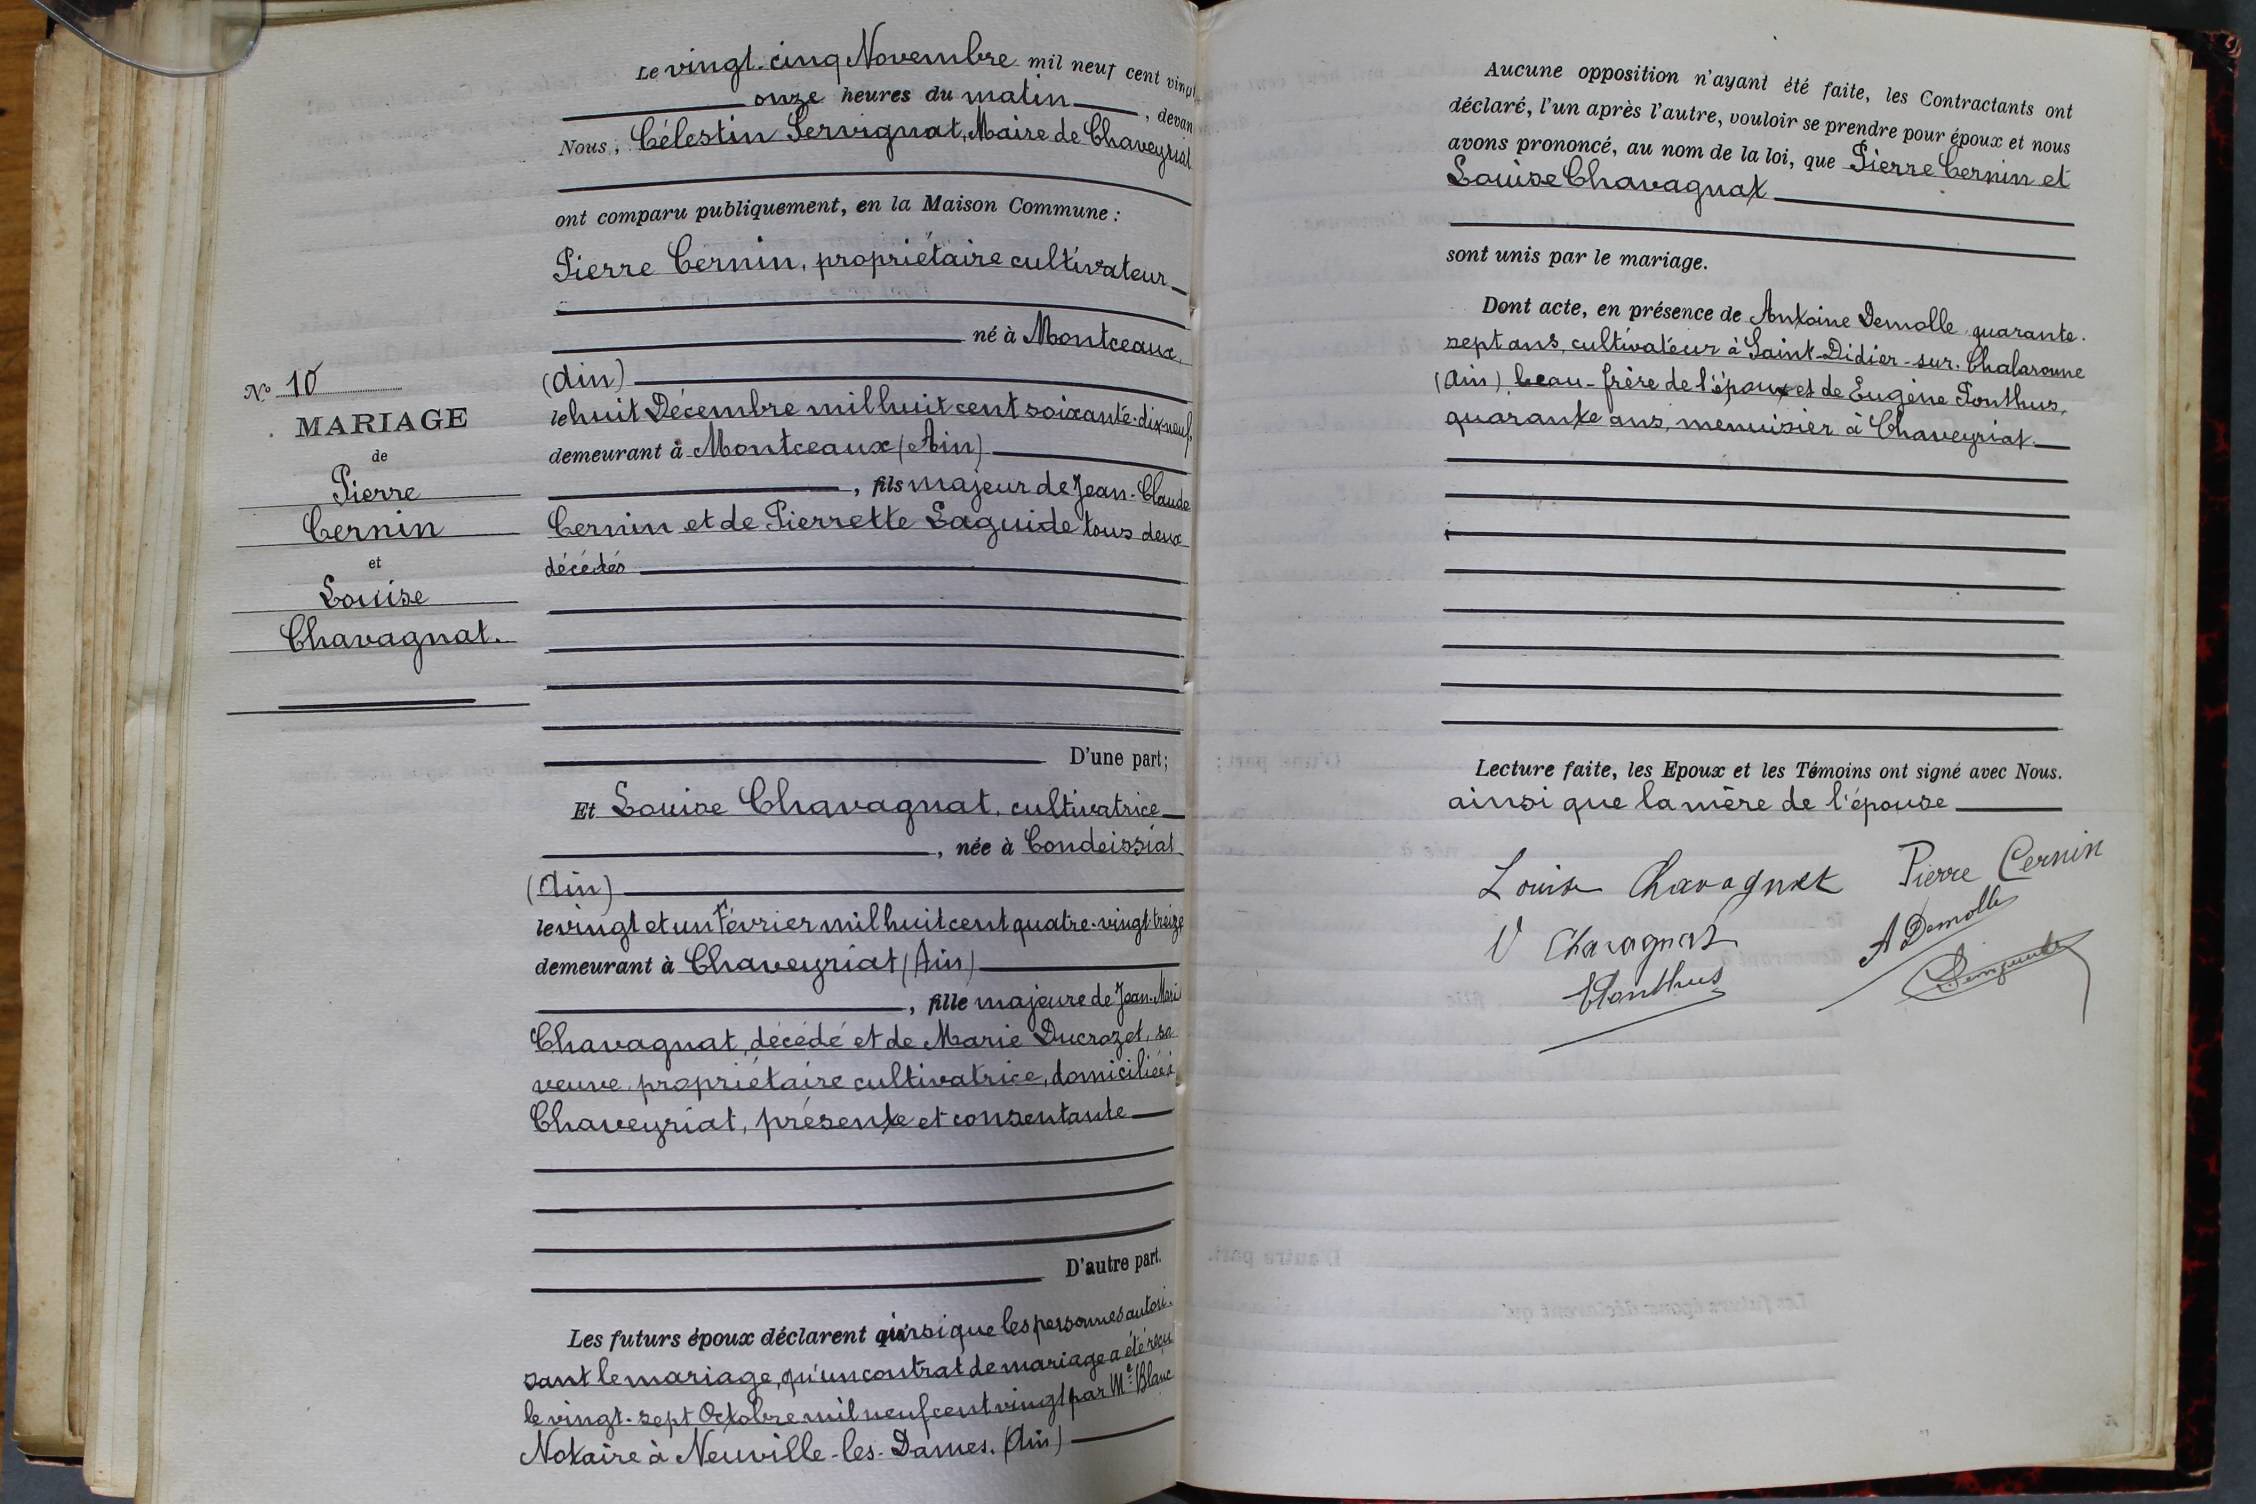 Le vingt-cinq Novembre mil neuf cent vingt
onze heures du matin, devan
Nous, Célestin Servignat, Maire de Chaveyriat
ont comparu publiquement, en la Maison Commune :
Pierre Cernin, propriétaire cultivateur
né à Montceaux
(Ain)
le huit Décembre mil huit cent soixante-dix-neuf,
demeurant à Montceaux (Ain)
, fils majeur de Jean-Claude
Cernin et de Pierrette Laguide tous deux
décédés
D'une part;
Et Louise Chavagnat, cultivatrice
, née à Condeissiat
(Ain)
le vingt et un Février mil huit cent quatre-vingt-treize
demeurant à Chaveyriat (Ain)
, fille majeure de Jean-Mari
Chavagnat, décédé et de Marie Ducrozet, sa
veuve, propriétaire cultivatrice, domiciliée à
Chaveyriat, présente et consentante
D'autre part.
Les futurs époux déclarent ainsi que les personnes autori-
sant le mariage, qu'un contrat de mariage a été reçu
le vingt-sept Octobre mil neuf cent vingt par Me Blanc
Notaire à Neuville-les-Dames. (Ain)
No 10
MARIAGE
de
Pierre
Cernin
et
Louise
Chavagnat.
Aucune opposition n'ayant été faite, les Contractants ont
déclaré, l'un après l'autre, vouloir se prendre pour époux et nous
avons prononcé, au nom de la loi, que Pierre Cernin et
Louise Chavagnat
sont unis par le mariage.
Dont acte, en présence de Antoine Demolle, quarante-
sept ans, cultivateur à Saint-Didier-sur-Chalaronne
(Ain), beau-frère de l'époux et de Eugène Ponthus,
quarante ans, menuisier à Chaveyriat.
Lecture faite, les Epoux et les Témoins ont signé avec Nous.
ainsi que la mère de l'épouse
Louise Chavagnat Pierre Cernin
V Chavagnat A Demolle
Ponthus